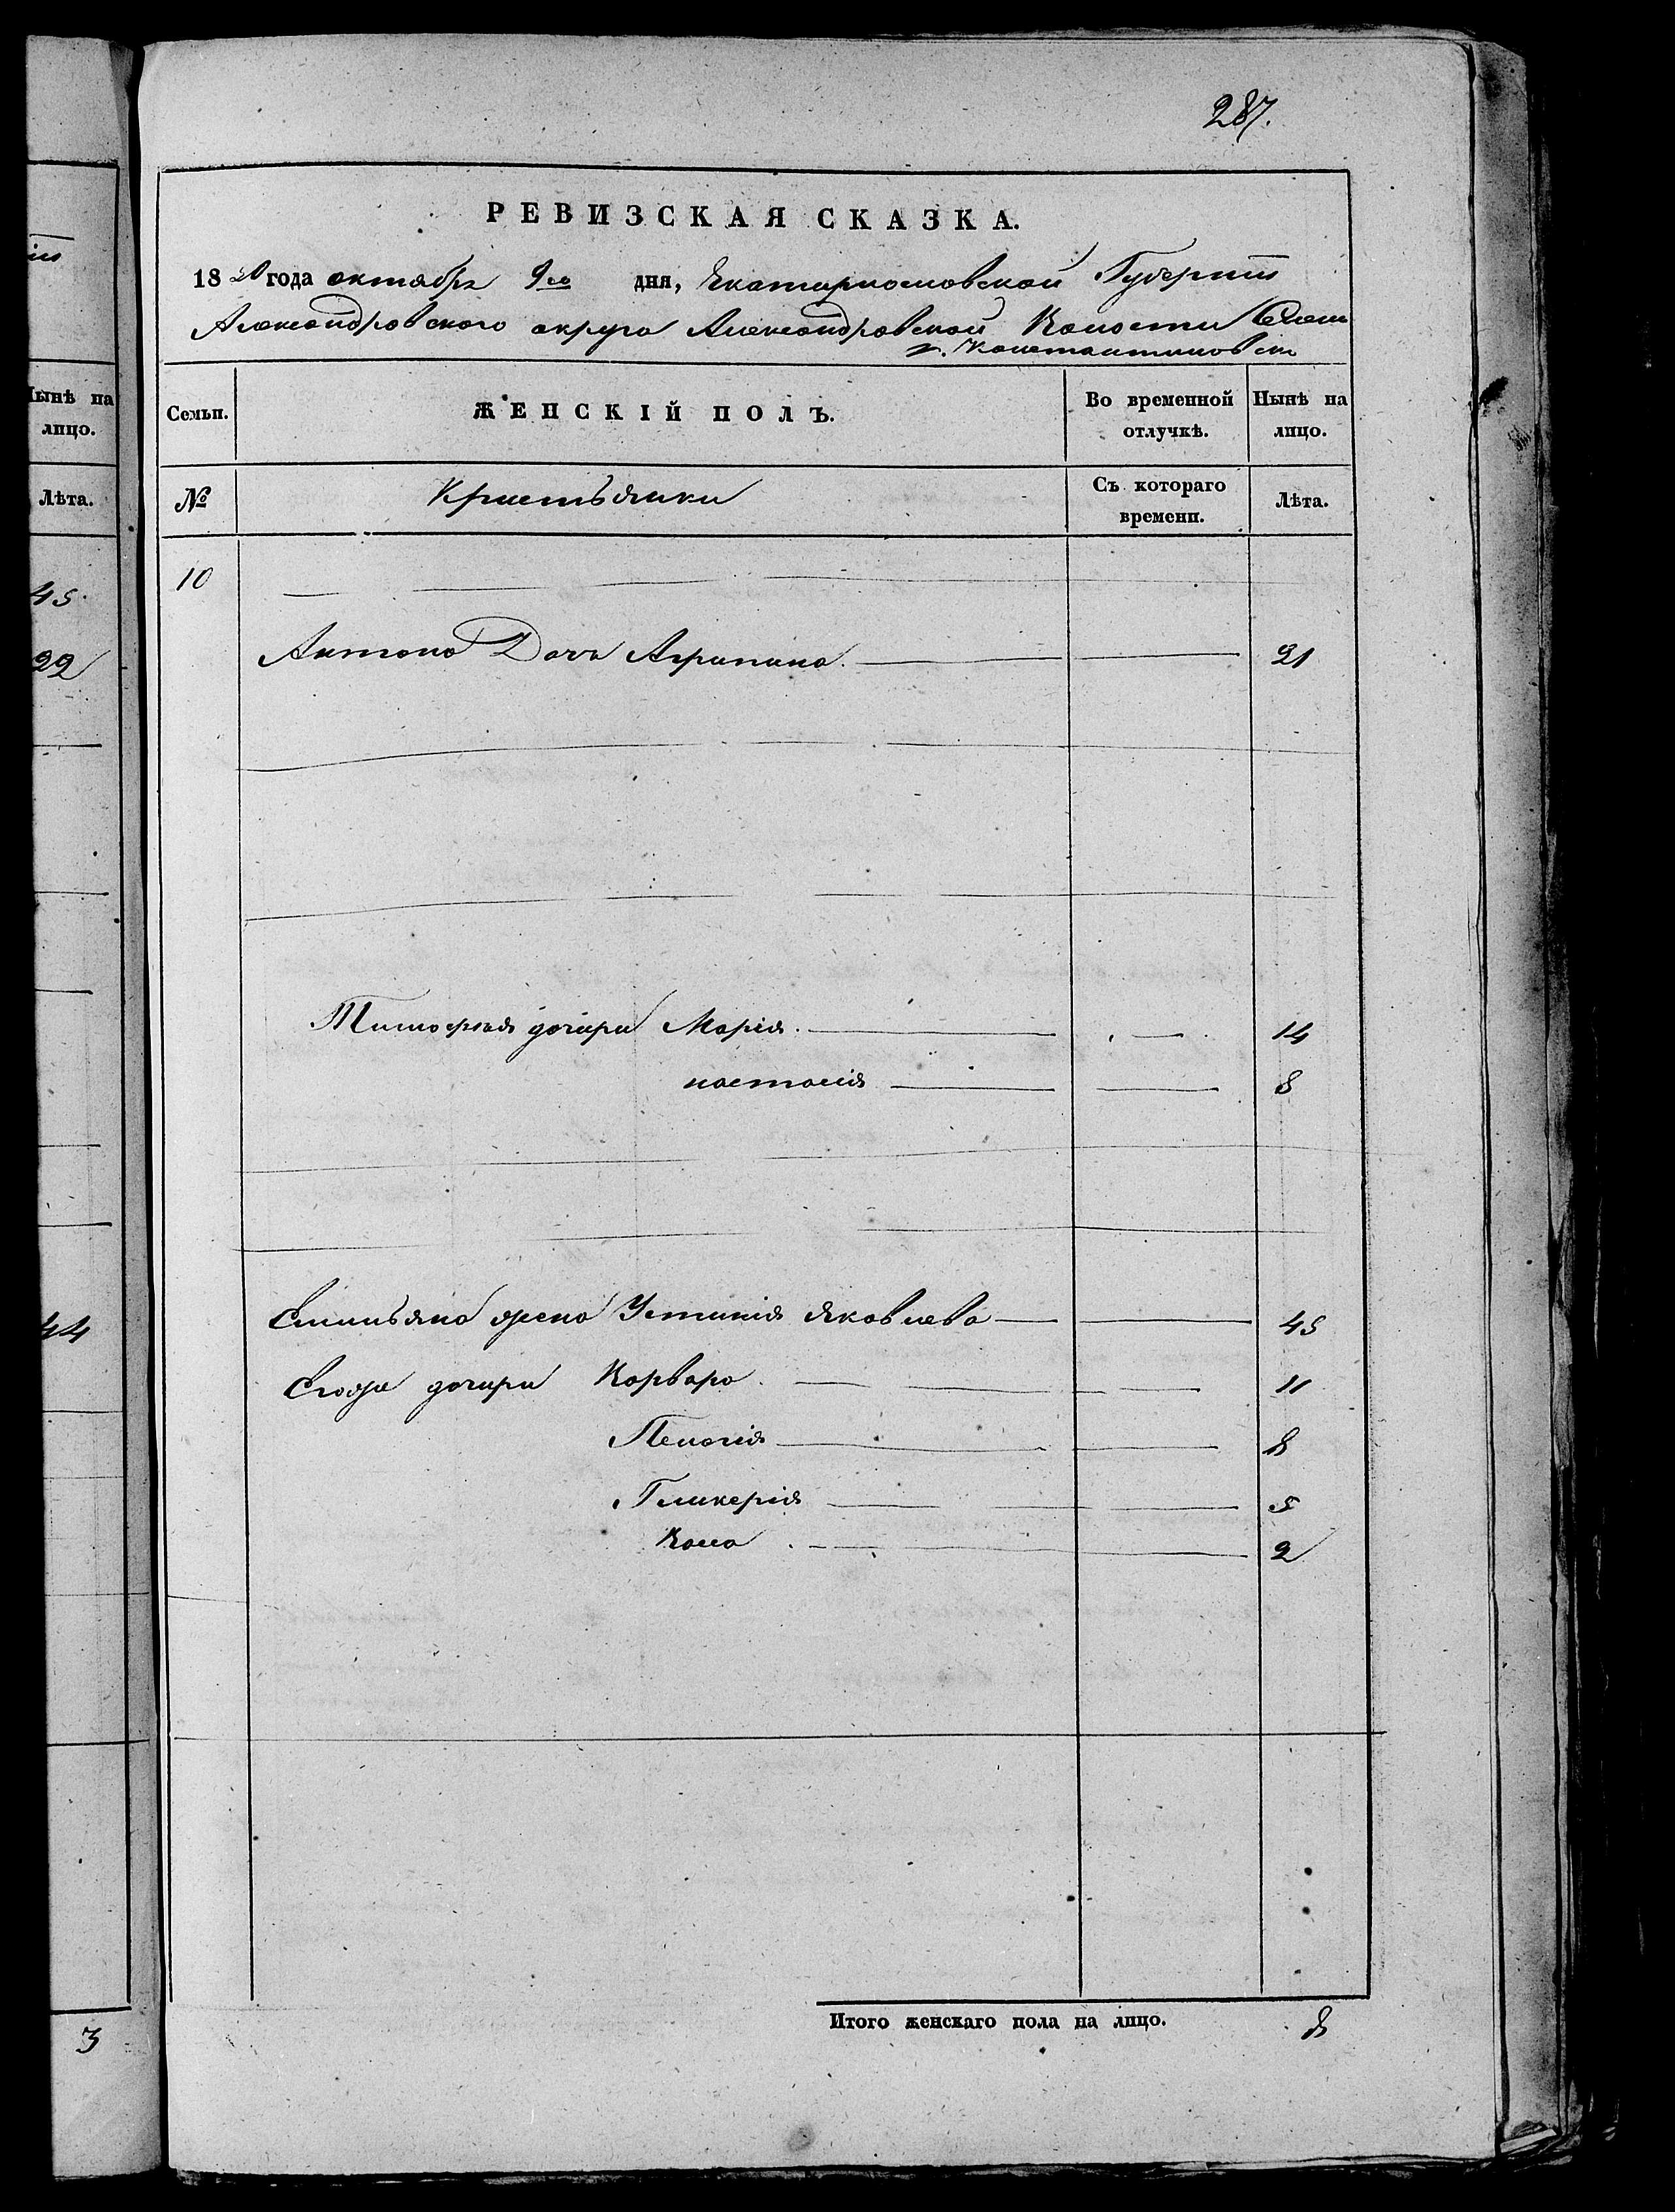 287.
РЕВИЗСКАЯ СКАЗКА.
1850 года октября 9го дня, Екатеринославской Губерніи
Александровского округа Александровской Волости Села
г. Константиновки
Семьи. ЖЕНСКІЙ ПОЛЪ. Во временной отлучкѣ. Нынѣ на лицо.
№ Крестьянки Съ котораго времени. Лѣта.
10
Антона Дочь Агрипина. 21
Тимофѣя дочери Марія. 14
настасія 8
Емельяна жена Устинія Яковлева 45
Егоже дочери Варвара. 11
Пелагія 8
Гликерія 5
Васса 2
Итого женскаго пола на лицо. 8
Нынѣ на
лицо.
Лѣта.
45
22
44
3